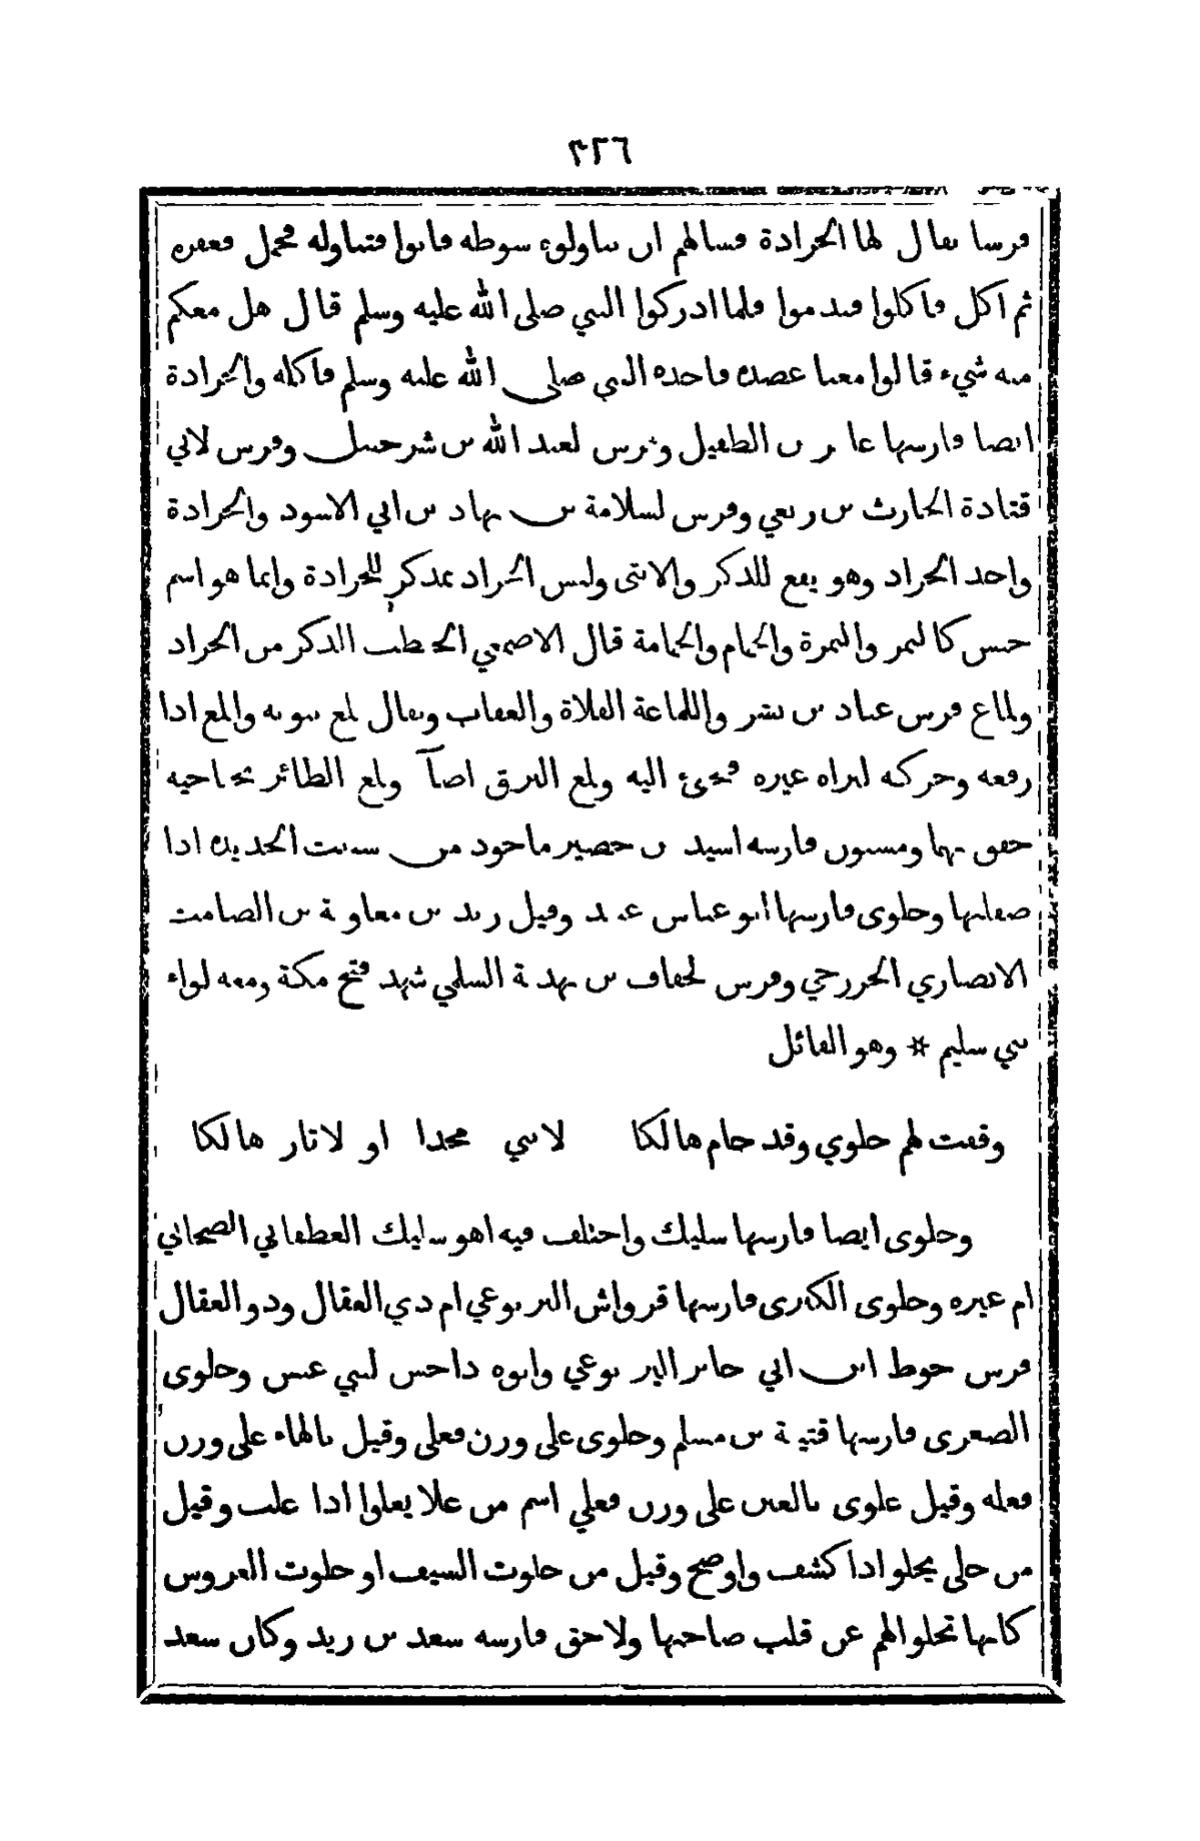 ٣٢٦
فرسا يقال لها الجرادة فسالهم ان يناولوه سوطه فابوا فتناوله فحمل فعقره
ثم اكل فاكلوا فندموا فلما ادركوا النبي صلى الله عليه وسلم قال هل معكم
منه شيء قالوا معنا عضده فاخذه النبي صلى الله عليه وسلم فاكله والجرادة
ايضا فارسها عامر بن الطفيل وفرس لعبد الله بن شرحبيل وفرس لابي
قتادة الحارث بن ربعي وفرس لسلامة بن نهاد بن ابي الاسود والجرادة
واحد الجراد وهو يقع للذكر والانثى وليس الجراد بمذكر للجرادة وانما هو اسم
جنس كالتمر والتمرة والحمام والحمامة قال الاصمعي الحنظب الذكر من الجراد
ولماع فرس عباد بن بشر واللماعة الفلاة والعقاب ويقال لمع بثوبه والمع اذا
رفعه وحركه ليراه غيره فيجئ اليه ولمع البرق اضآ ولمع الطائر بجناحيه
خفق بهما ومسنون فارسه اسيد بن حضير ماخوذ من سننت الحديدة اذا
صقلتها وجلوى فارسها ابو عياش عبيد وقيل زيد بن معاوية بن الصامت
الانصاري الخزرجي وفرس لخفاف بن ندبة السلمي شهد فتح مكة ومعه لواء
بني سليم * وهو القائل
وقفت لهم جلوي وقد حام هالكا لابني مجدا او لاثار هالكا
وجلوى ايضا فارسها سليك واختلف فيه اهو سليك الغطفاني الصحابي
ام غيره وجلوى الكبرى فارسها قرواش اليربوعي ام ذي العقال وذو العقال
فرس حوط ابن ابي جابر اليربوعي وابوه داحس لبني عبس وجلوى
الصغرى فارسها قتيبة بن مسلم وجلوى على وزن فعلى وقيل بالهاء على وزن
فعله وقيل علوى بالعين على وزن فعلي اسم من علا يعلوا اذا غلب وقيل
من جلى يجلو اذا كشف واوضح وقيل من جلوت السيف او جلوت العروس
كانها تجلوالهم عن قلب صاحبها ولاحق فارسه سعد بن زيد وكان سعد